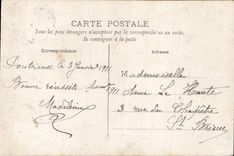 CARTE POSTALE
Tous les pays étrangers n'acceptent pas la correspondance au recto.
Se renseigner à la poste
Correspondance
Adresse :
Pontrieux le 3 Janvier 1911
Bonne réussite
Madeleine
Mademoiselle
Anne Le
3 rue du
St Brieuc